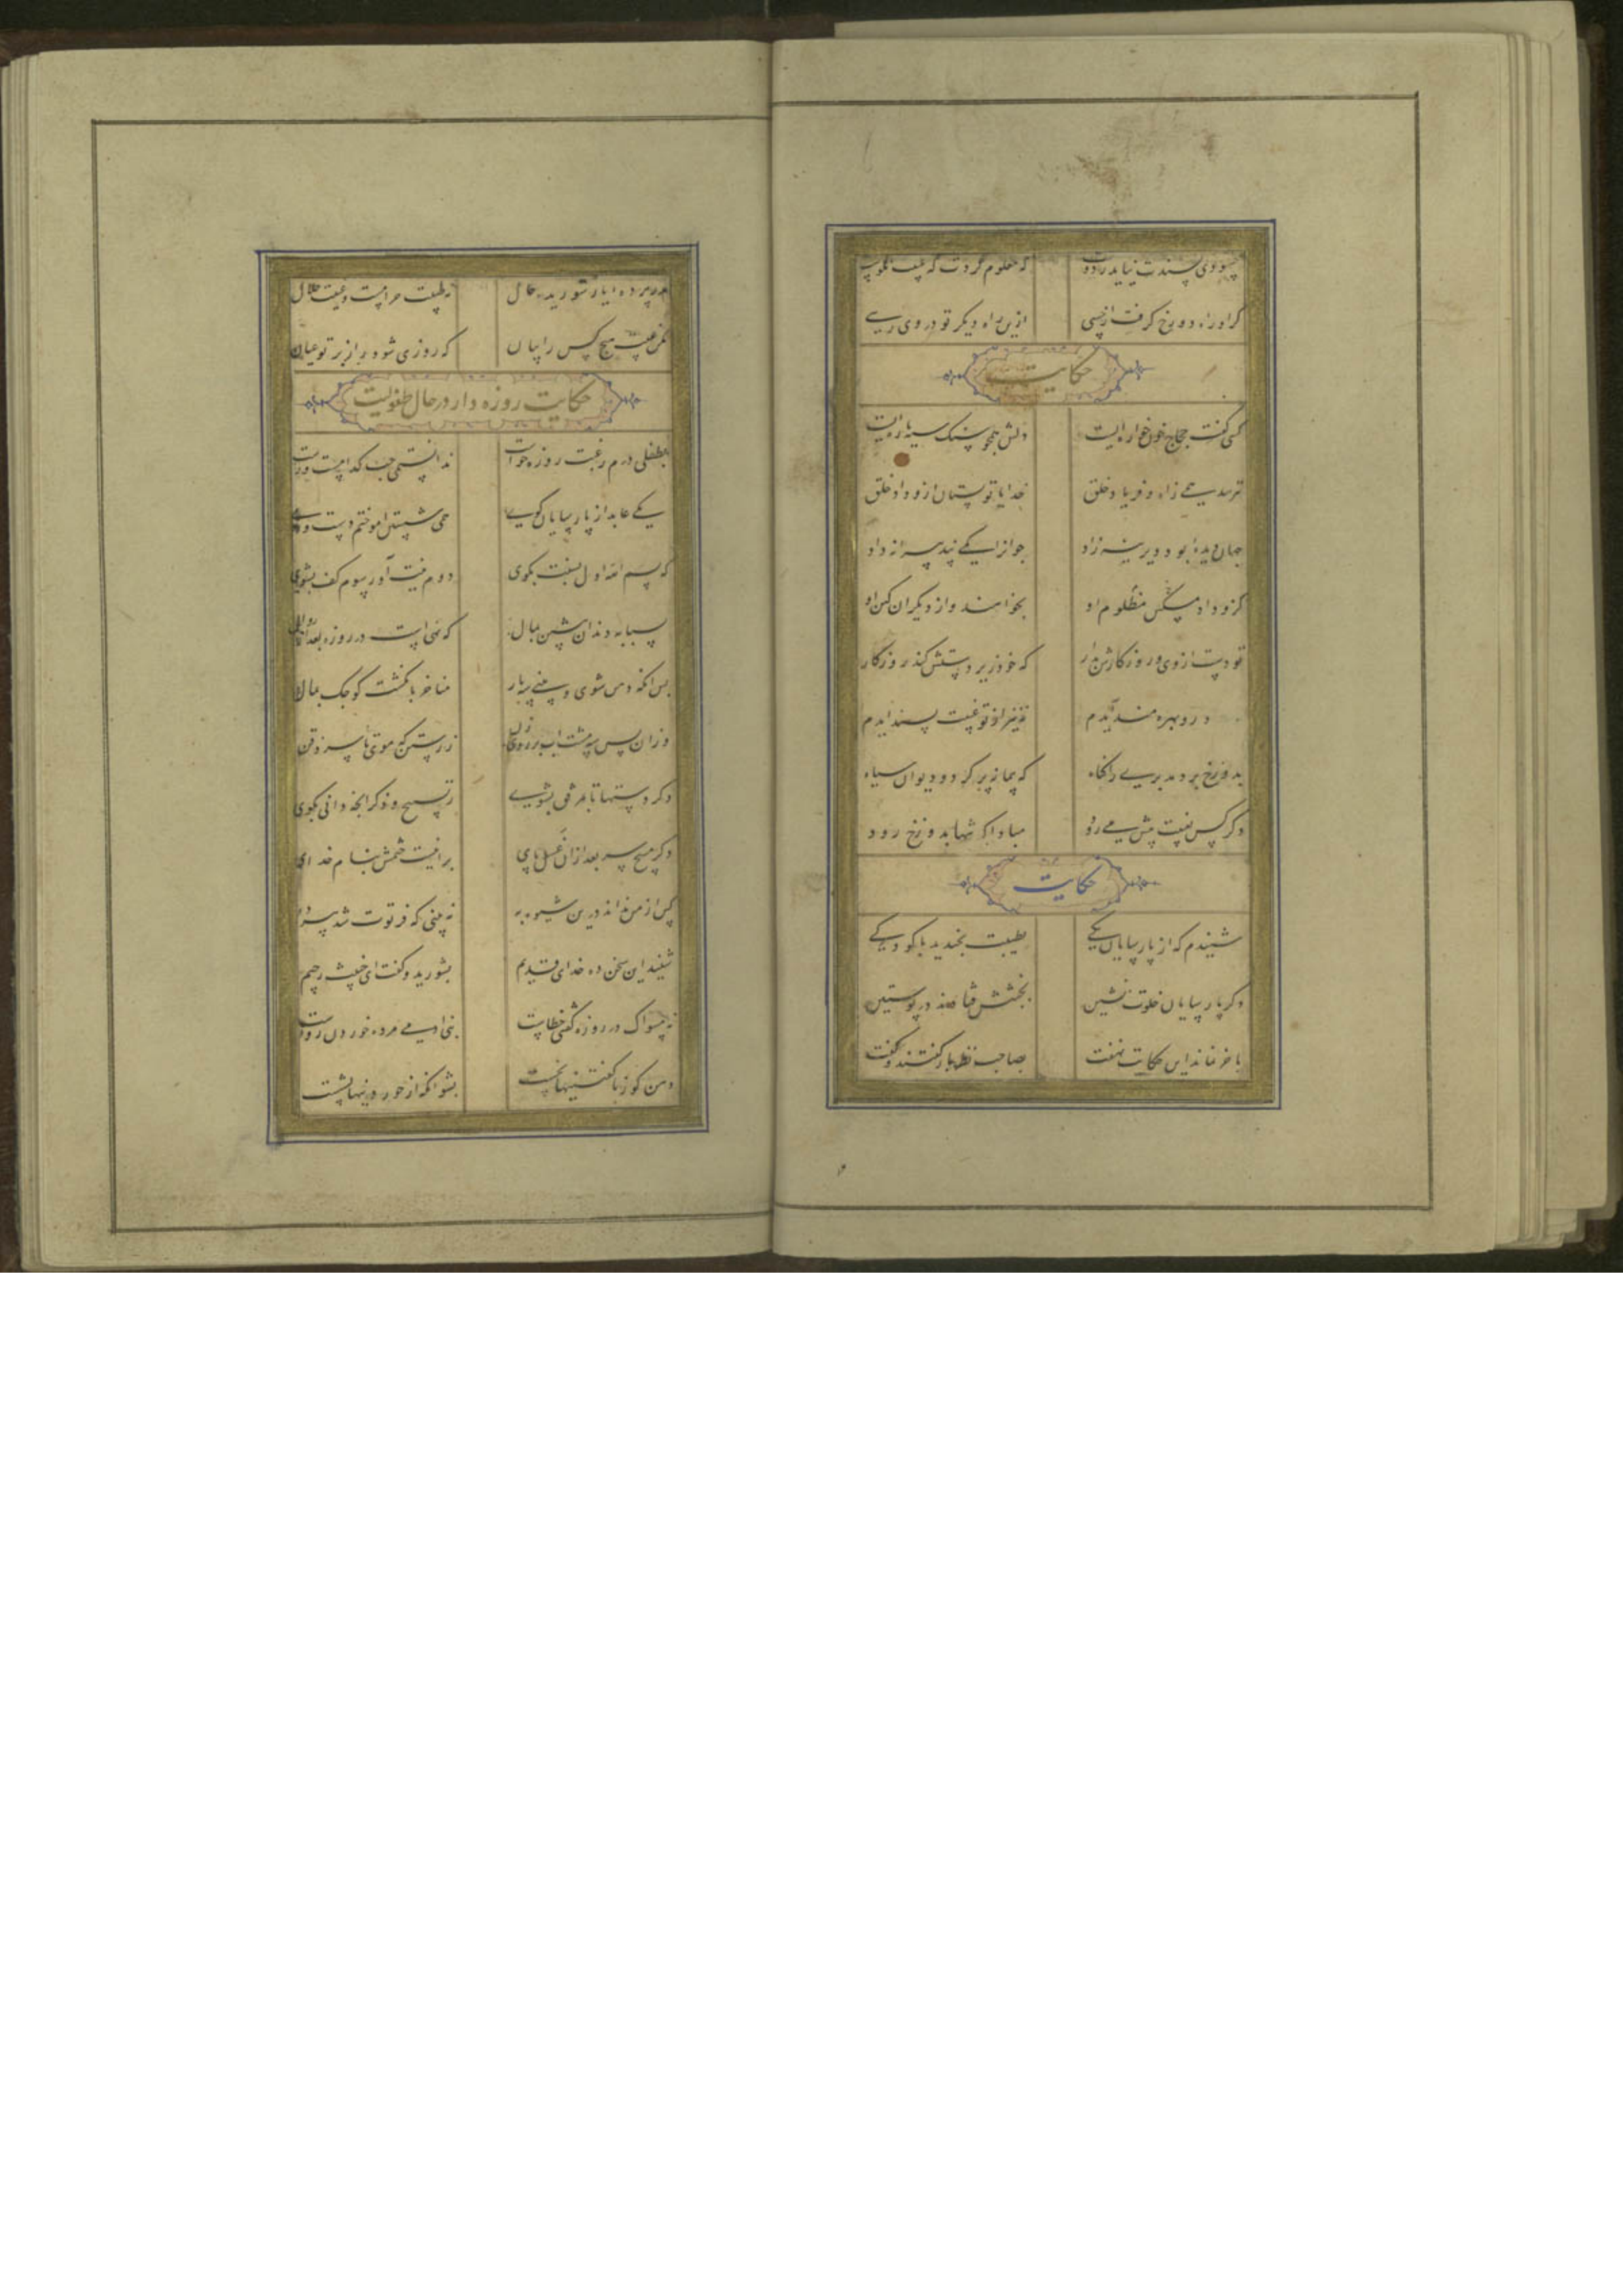 چو وی پسندت نیاید ز دوست که معلوم کردت که غیبت نکوست
کر او راه دوزخ کرفت از خسی ازین راه دیکر تو در وی رسی
حکایت
کسی کفت حجاج خون خواره‌ایست دلش همچو سنک سیه پاره‌ایست
نترسد همی زاه و فریاد خلق خدایا تو بستان ازو داد خلق
جهان دیدهٔ بود دیرینه زاد جوانرا یکی پند پیرانه داد
کزو داد مسکین مظلوم او بخواهند و از دیکران کین او
تو دست از وی و روزکارش بدار که خود زیر دستش کند روزکار
نه نیز از تو غیبت پسند ایدم
بدوزخ برد مدبری را کناه که پیمانه پر کرد و دیوان سیاه
دکر کس بغیبت پیش می‌رود مبادا که تنها بدوزخ رود
حکایت
شنیدم که از پارسایان یکی بطیبت بخندید با کودکی
دکر پارسایان خلوت نشین بخبثش فتادند در پوستین
باخر نماند این حکایت نهفت بصاحب نظر باز کفتند و کفت
مدر پرده از یار شوریده حال نه طیبت حرامست و غیبت حلال
مکن عیب هیچ کس را بیان که روزی شود راز بر تو عیان
حکایت روزه دار در حال طفولیت
بطفلی درم رغبت روزه خواست ندانستمی چپ کدامست و راست
یکی عابد از پارسایان کوی همی شستن اموختم دست و روی
که بسم الله اول بسنت بکوی دوم نیت آور سوم کف بشوی
سبابه دندان پیشین بمال که نهی است در روزه بعد از زوال
پس انکه دهن شوی و بینی سه بار مناخر بانکشت کوچک
وزان پس سه مشت اب بر روی زن ز رستن که موی تا سر ذقن
دکر دستها تا مرفق بشوی ز تسبیح و ذکر انچه دانی بکوی
دکر مسح سر بعد ازان غسل پای برانیست ختمش بنام خدای
کس از من نداند درین شیوه به نه بینی که فرتوت شد پیر ده
شنید این سخن ده خدای قدیم بشورید و کفت ای خبیث رجیم
نه مسواک در روزه کفتی خطاست بنی ادمی مرده خوردن رواست
دهن کو ز ناکفتنیها نخست بشو انکه از خوردنیها بشست